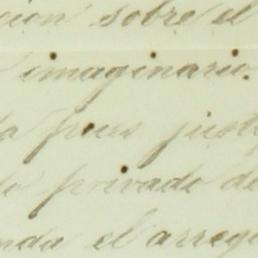 cion sobre el
imaginario.
la pues justo
do privado de
nda el arreg